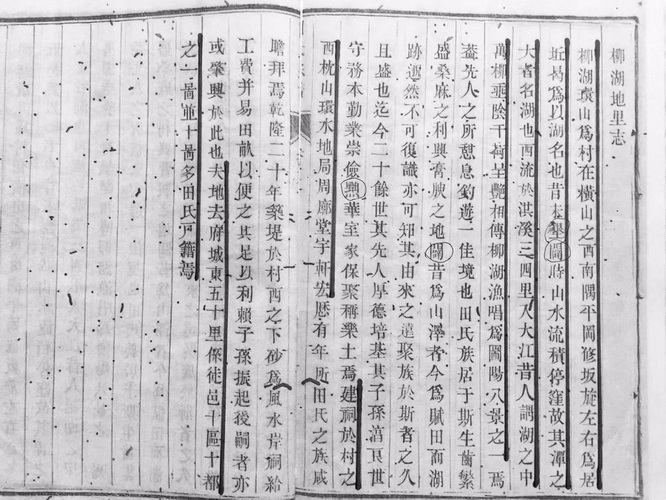 柳湖地里志
柳湖環山爲村在橫山之西南隅平岡修坂旋左右爲居
近易爲以湖名也昔未墾闢時山水流積停窪故其潭之
大者名湖也西流於淇溪三四里入大江昔人謂湖之中
萬柳乘陰千荷呈艷相傳柳湖漁唱爲圖陽八景之一焉
葢先人之所憇息釣遊一佳境也田氏族居于斯生齒繁
盛桑麻之利興膏腴之地闢昔爲山澤者今爲賦田而湖
跡邈然不可復識亦可知其由來之遠聚族於斯者之久
且盛也迄今二十餘世其先人厚德培基其子孫萬良世
守務本勤業崇儉黜華室家保聚稱樂土焉建祠於村之
酉枕山環水地局周廓堂宇軒宏歷有年所田氏之族咸
瞻拜焉乾隆二十年築堤於村西之下砂爲風水岸祠給
工費并易田畝以便之其足以利賴子孫振起後嗣者亦
或肇興於此也夫地去府城東五十里係徒邑十區十都
之一啚並十啚多田氏戸籍焉